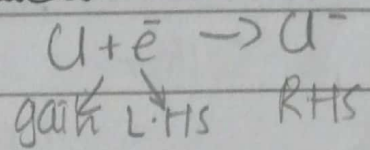 Cl + ē → Cl⁻
gain L.HS RHS